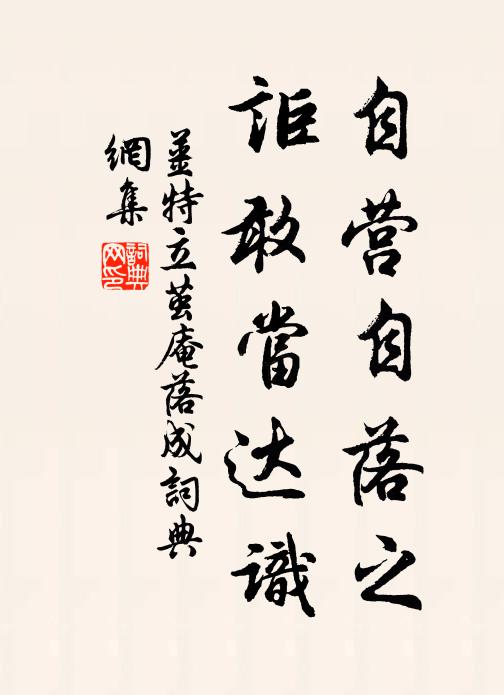 自营自落之
詎敢當达識
姜特立茧庵落成詞典
網集
詞典
网印